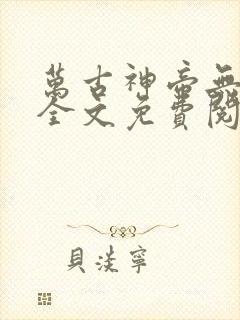 萬古神帝無
全文免費閱
貝淡寧